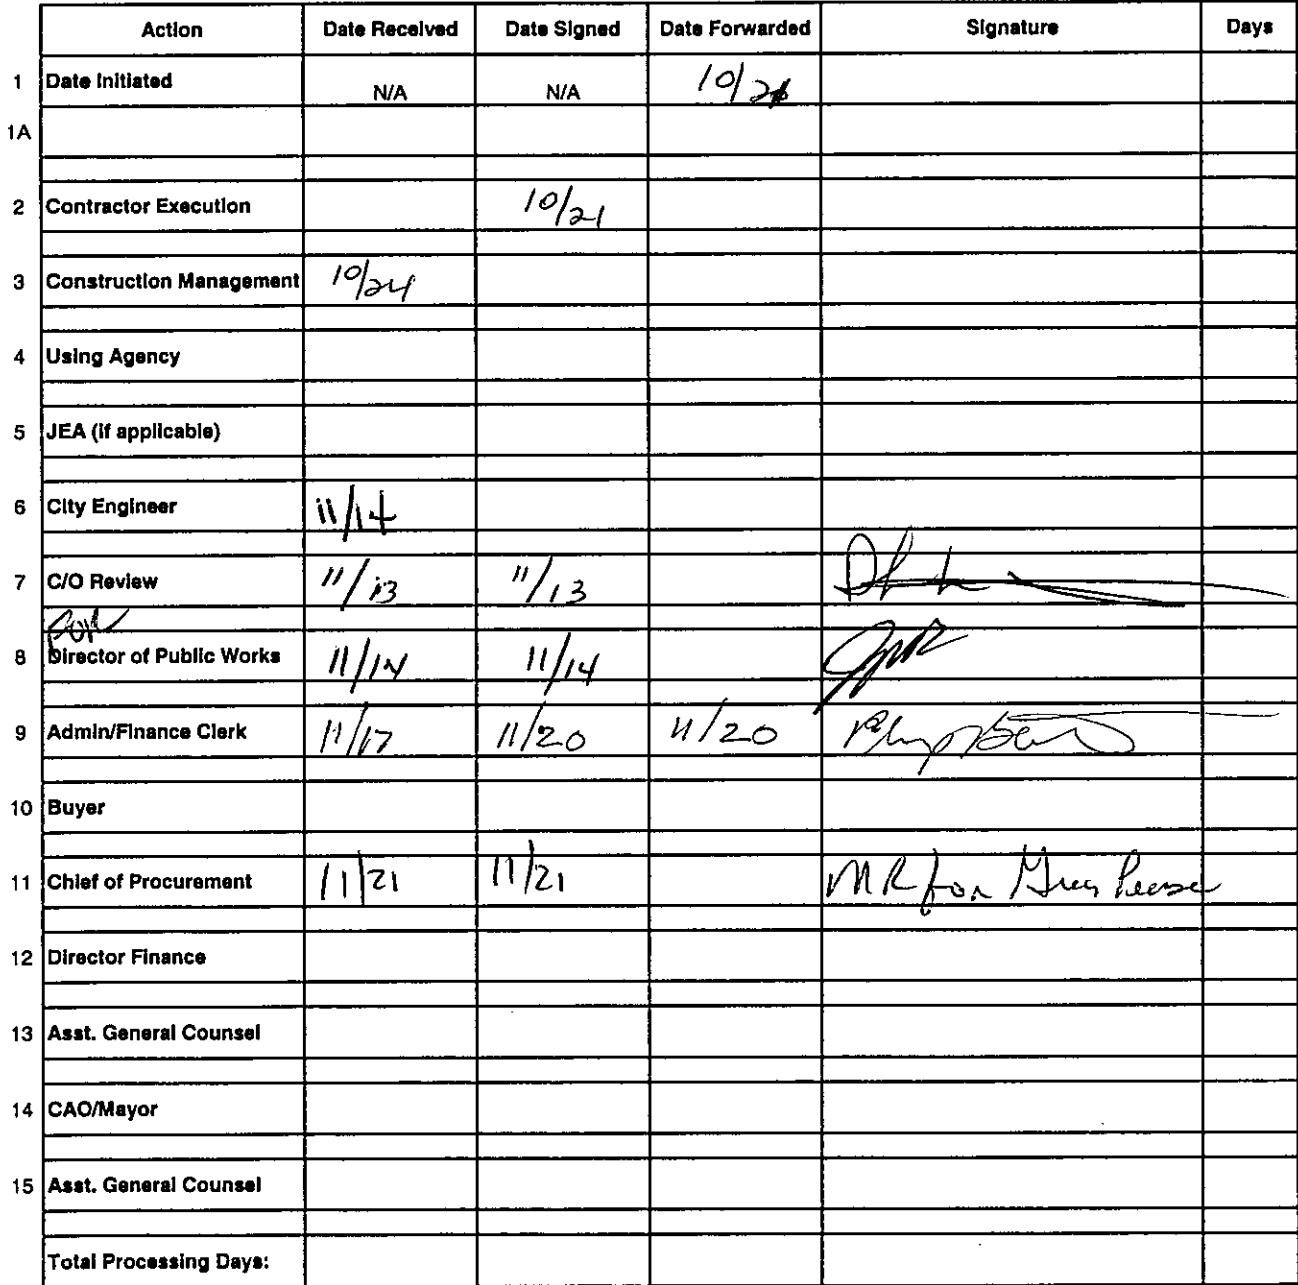 Action Date Received Date Signed Date Forwarded Signature Days
1 Date Initiated N/A N/A 10/
1A
2 Contractor Execution 10/21
3 Construction Management 10/24
4 Using Agency
5 JEA (if applicable)
6 City Engineer 11/14
7 C/O Review 11/13 11/13
8 Director of Public Works 11/14 11/14
9 Admin/Finance Clerk 11/17 11/20 11/20
10 Buyer
11 Chief of Procurement 11/21 11/21 MR for Greg Pease
12 Director Finance
13 Asst. General Counsel
14 CAO/Mayor
15 Asst. General Counsel
Total Processing Days: